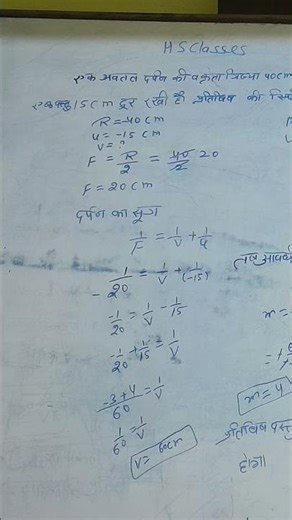 HS Classes
एक अवतल दर्पण की वक्रता त्रिज्या 40cm
एक वस्तु 15cm दूर रखी है प्रतिबिंब की
R = 40cm
u = -15 cm
v = ?
F = R/2 = 40/2 20
F = 20cm
दर्पण का सूत्र
1/F = 1/v + 1/u
-1/20 = 1/v + 1/(-15)
-1/20 = 1/v - 1/15
-1/20 + 1/15 = 1/v
-3+4/60 = 1/v
1/60 = 1/v
v = 60cm
तब आवर्धन
m =
m = 4
प्रतिबिंब वस्तु
होगा